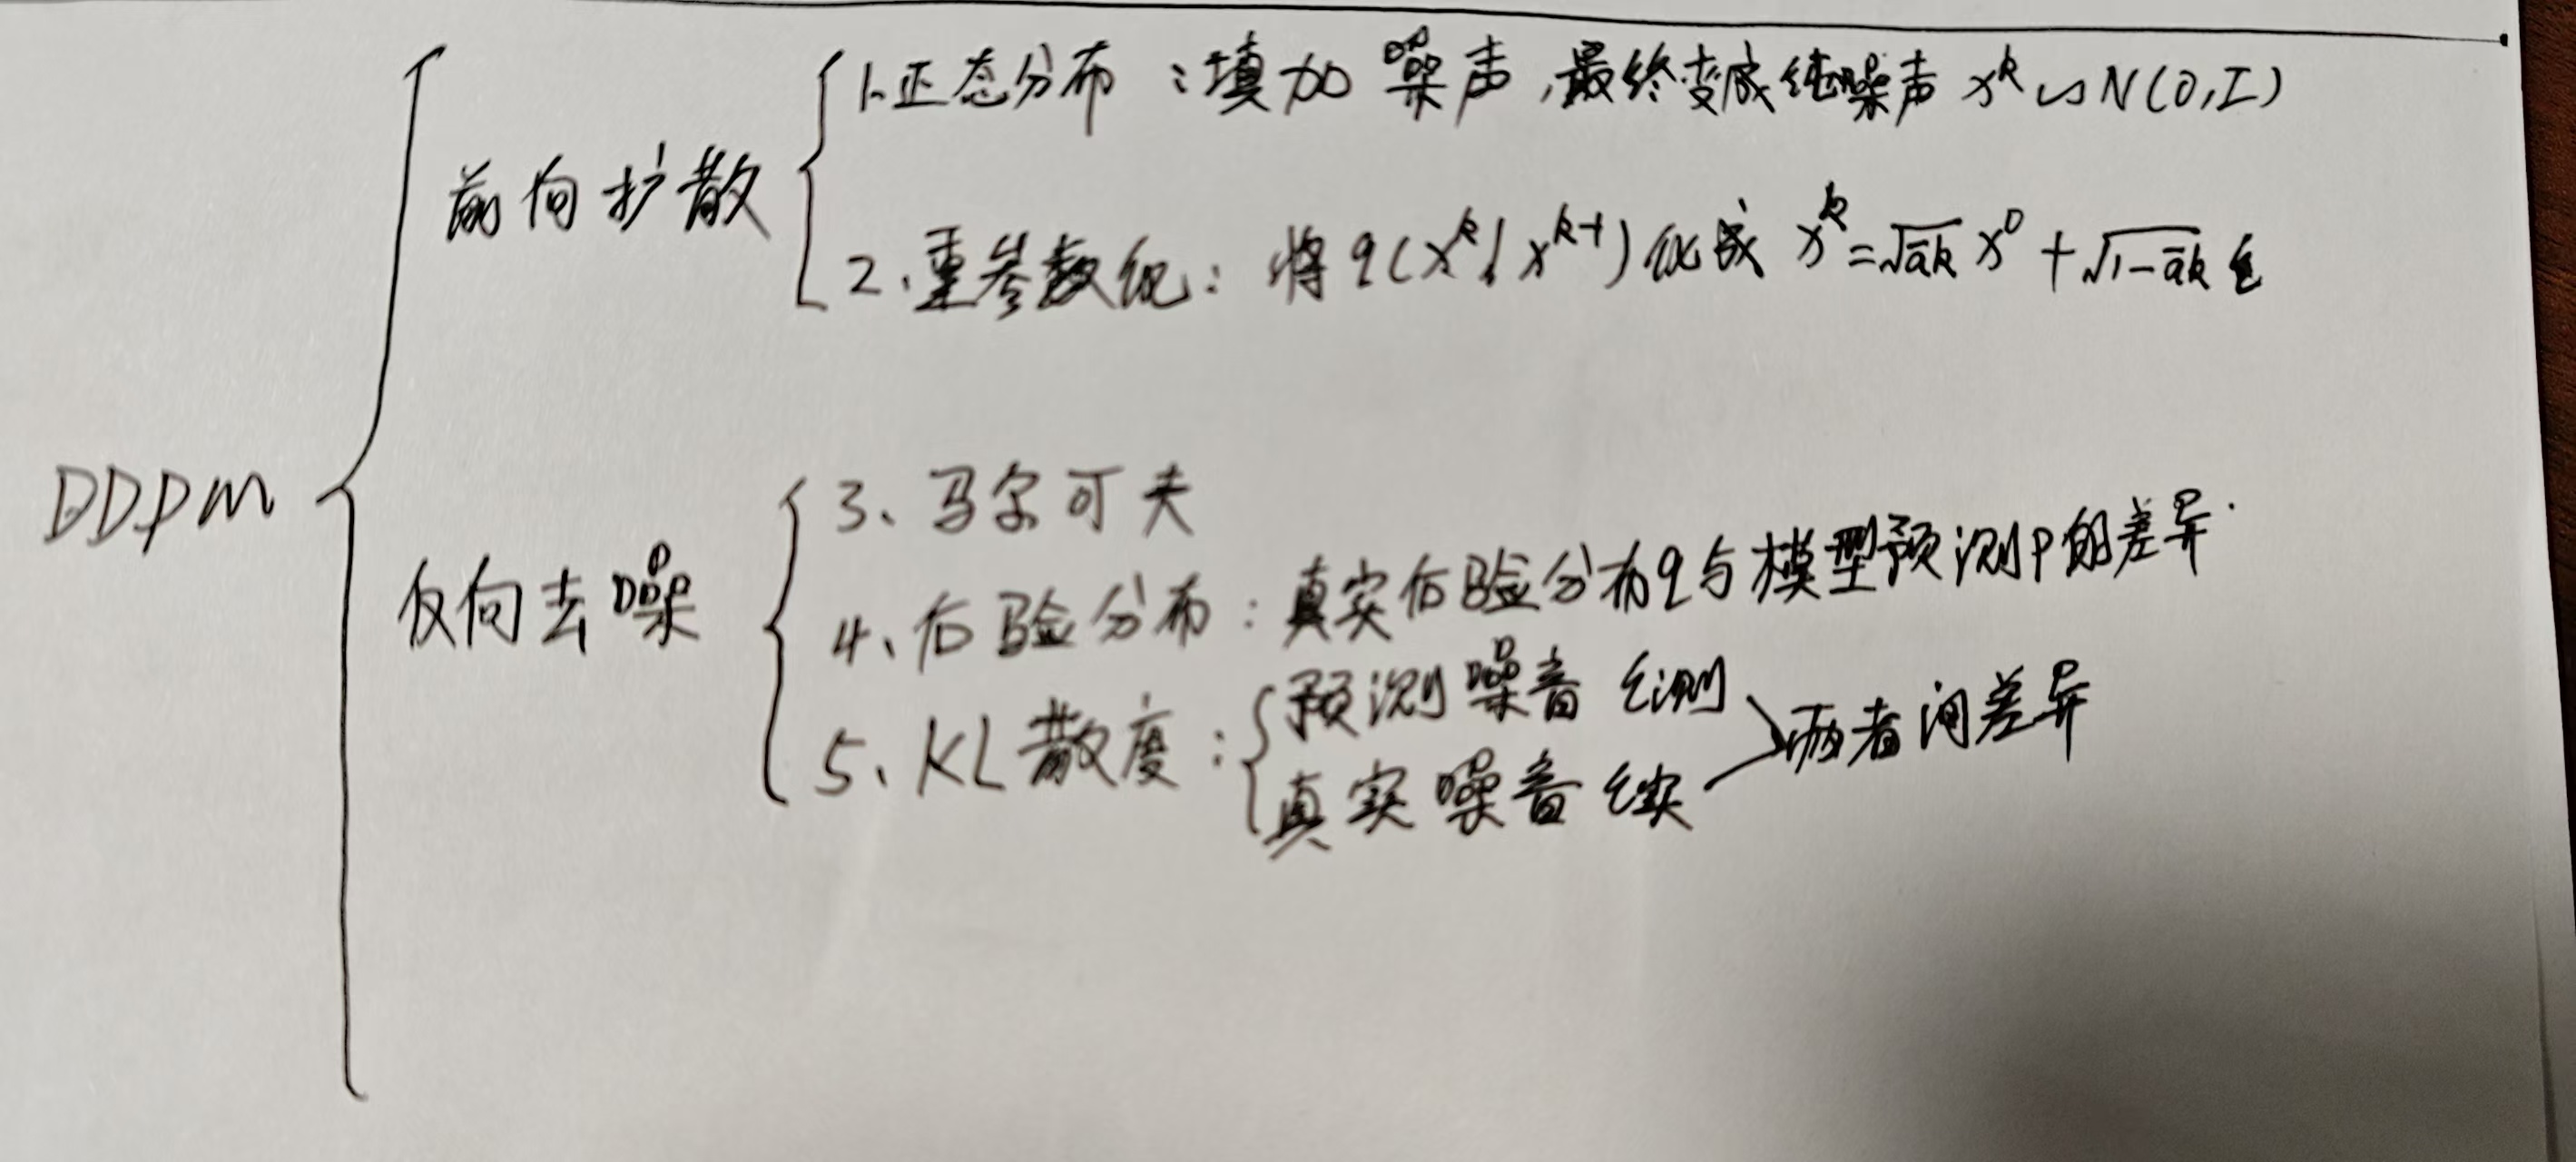 DDPM
前向扩散
1.正态分布：填加噪声,最终变成纯噪声 x^k ∽ N(0,I)
2、重参数化：将q(x^k|x^{k-1})化成 x^k=√ᾱk x^0+√1-ᾱk ε
反向去噪
3、马尔可夫
4、后验分布：真实后验分布q与模型预测P的差异.
5、KL散度：
预测噪音 ε测
真实噪音 ε实
两者间差异